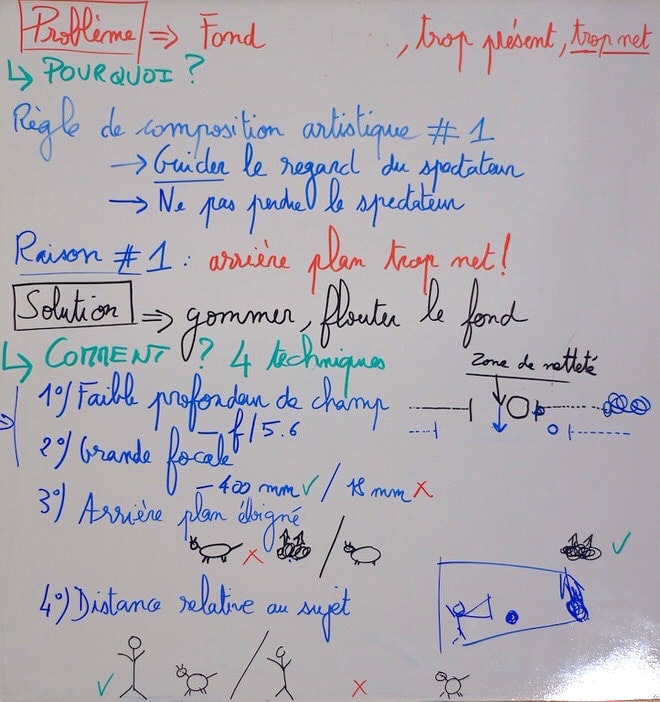 Problème => Fond , trop présent, trop net
↳ POURQUOI ?
Règle de composition artistique # 1
→ Guider le regard du spectateur
→ Ne pas perdre le spectateur
Raison # 1 : arrière plan trop net !
Solution => gommer, flouter le fond
↳ COMMENT ? 4 techniques
Zone de netteté
1°/ Faible profondeur de champ
– f/5.6
2°/ Grande focale
– 400 mm ✓ / 18 mm ✗
3°/ Arrière plan éloigné
4°/ Distance relative au sujet